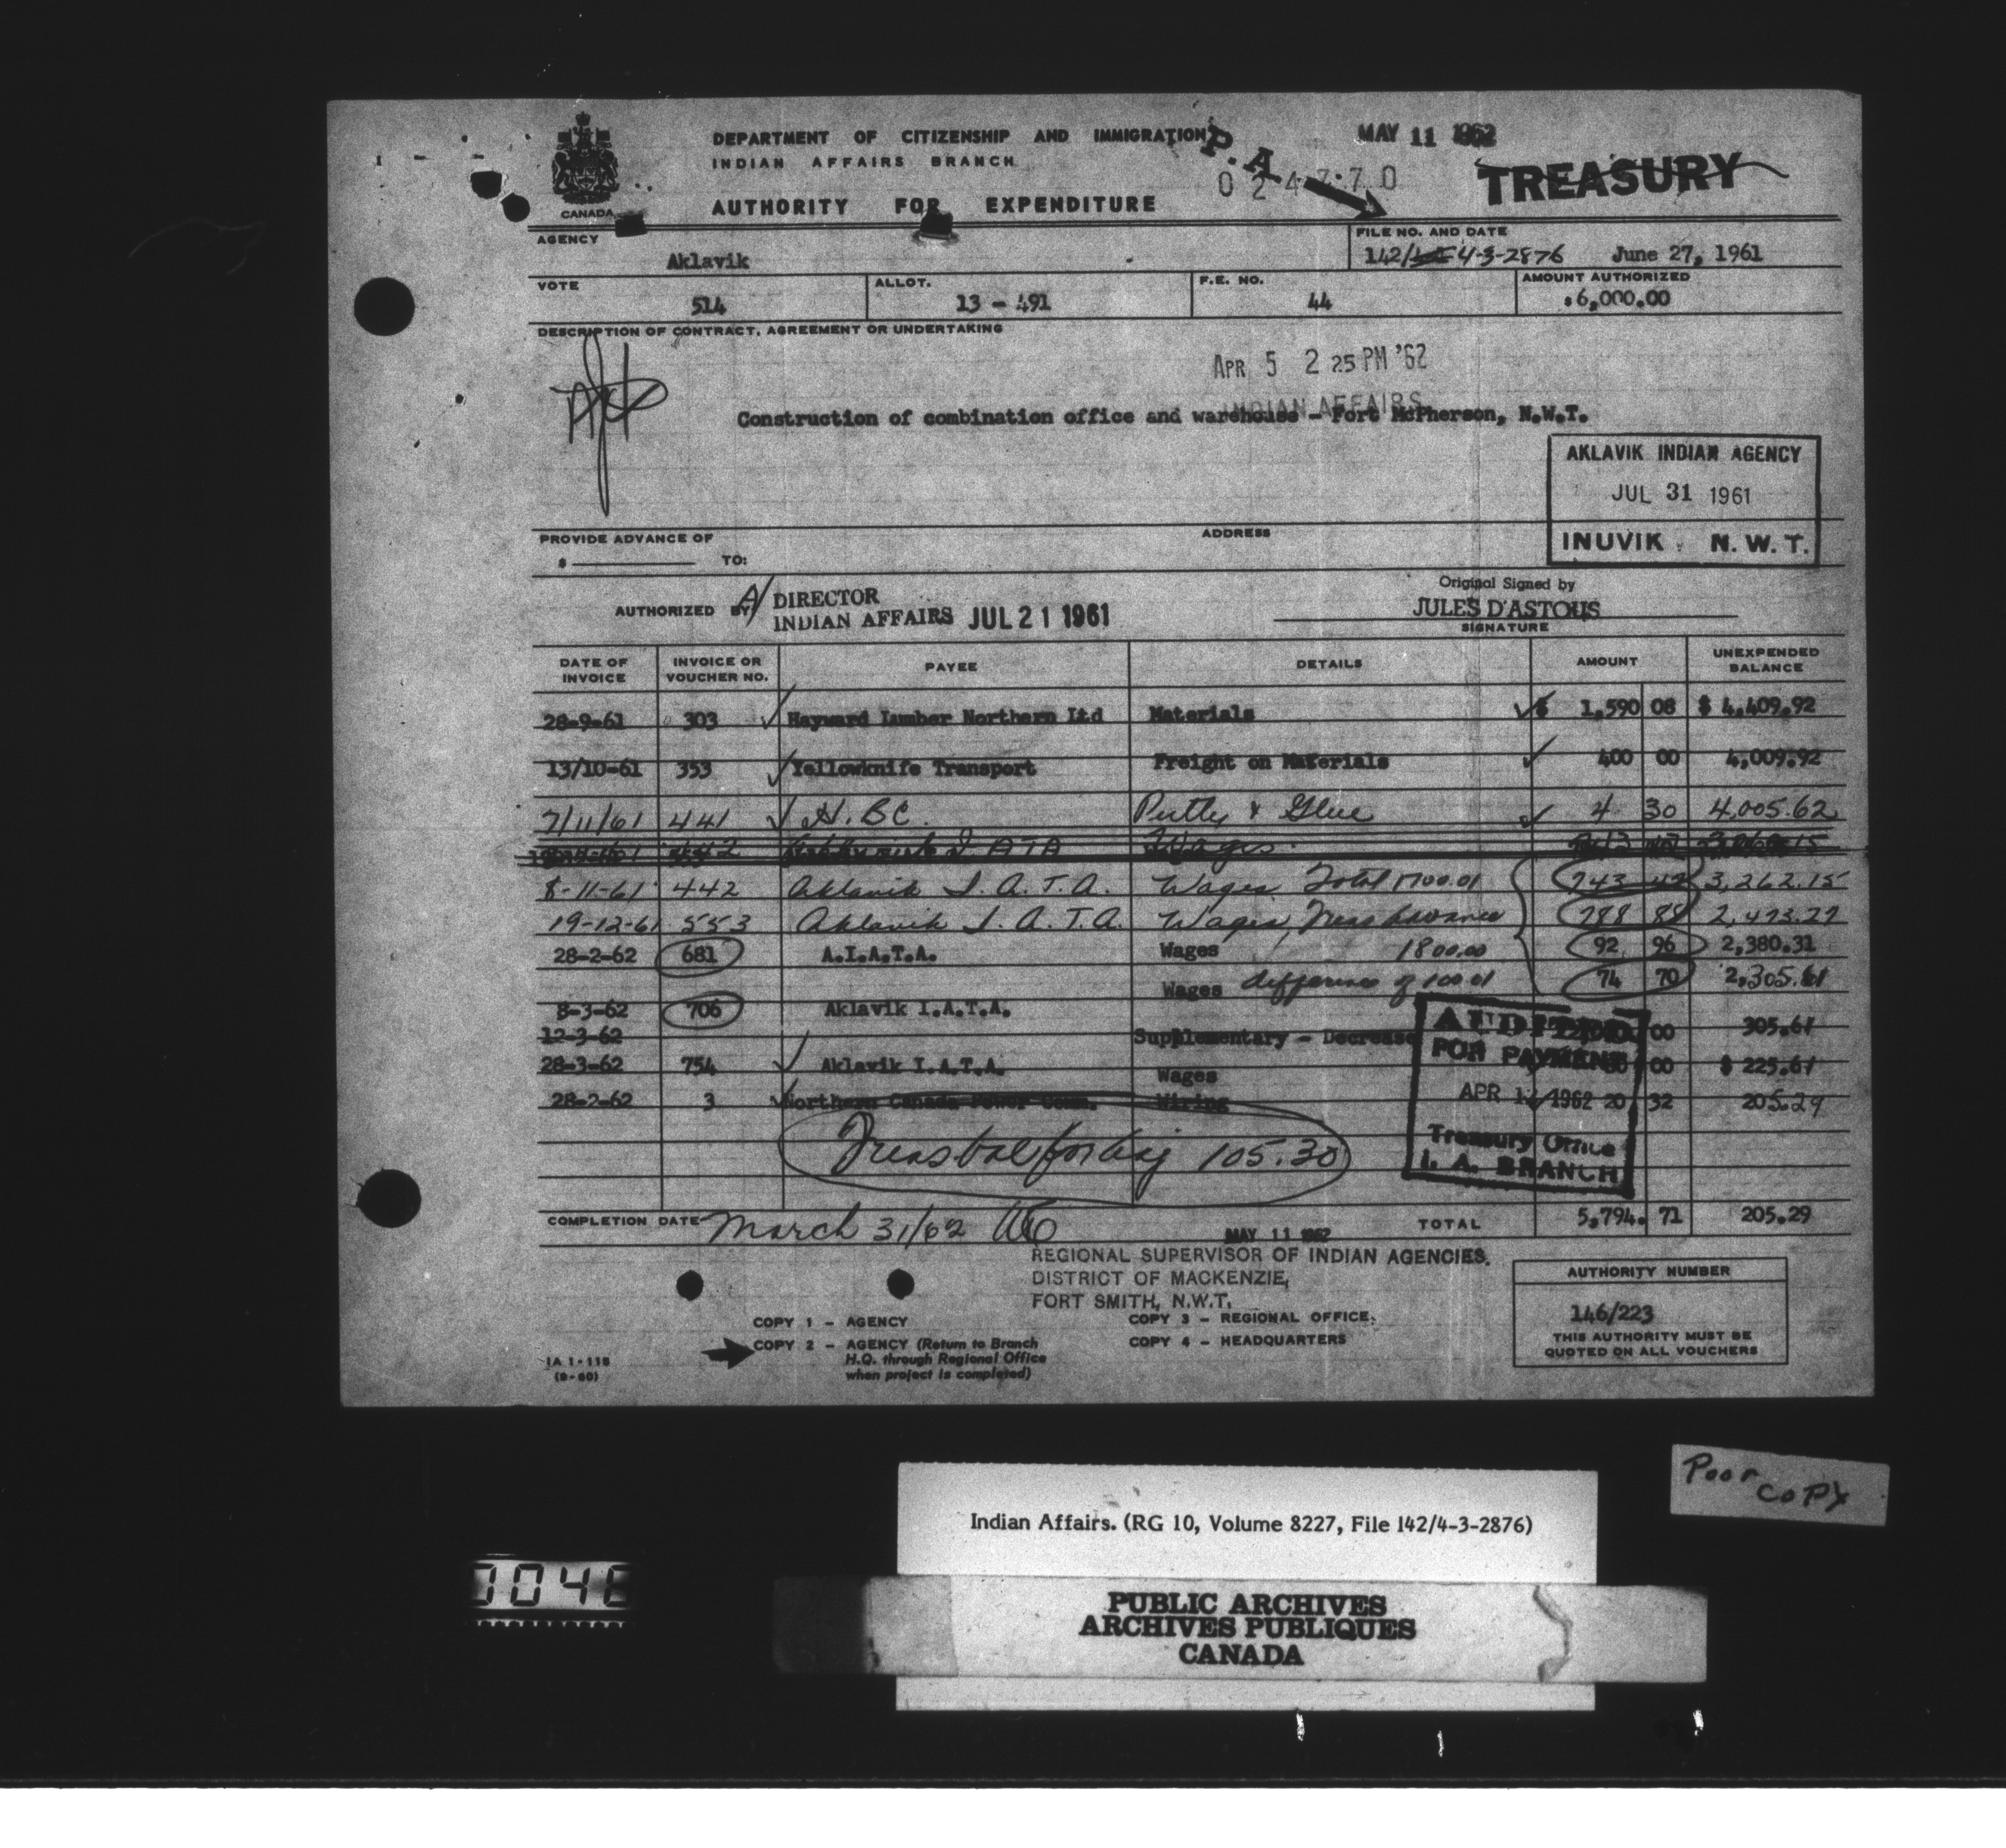 DEPARTMENT OF CITIZENSHIP AND IMMIGRATION
INDIAN AFFAIRS BRANCH
AUTHORITY FOR EXPENDITURE
CANADA
P.A.
024770
MAY 11 1962
TREASURY
AGENCY
Aklavik
FILE NO. AND DATE
142/ 4-3-2876 June 27, 1961
VOTE
514
ALLOT.
13 - 491
F.E. NO.
44
AMOUNT AUTHORIZED
$6,000.00
DESCRIPTION OF CONTRACT, AGREEMENT OR UNDERTAKING
APR 5 2 25 PM '62
INDIAN AFFAIRS
Construction of combination office and warehouse - Fort McPherson, N.W.T.
AKLAVIK INDIAN AGENCY
JUL 31 1961
INUVIK N.W.T.
PROVIDE ADVANCE OF
$ TO:
ADDRESS
AUTHORIZED BY
DIRECTOR
INDIAN AFFAIRS JUL 21 1961
Original Signed by
JULES D'ASTOUS
SIGNATURE
DATE OF INVOICE INVOICE OR VOUCHER NO. PAYEE DETAILS AMOUNT UNEXPENDED BALANCE
28-9-61 303 Hayward Lumber Northern Ltd Materials $ 1,590 08 $ 4,409.92
13/10-61 353 Yellowknife Transport Freight on Materials 400 00 4,009.92
7/11/61 441 H.B.C. Putty & Glue 4 30 4,005.62
442 Wages
8-11-61 442 Aklavik I.A.T.A. Wages Total 1700.01 743 47 3,262.15
19-12-61 553 Aklavik I.A.T.A. Wages, Treas Advance 788 88 2,473.27
28-2-62 681 A.I.A.T.A. Wages 1800.00 92 96 2,380.31
Wages difference of 100.01 74 70 2,305.61
8-3-62 706 Aklavik I.A.T.A.
12-3-62 Supplementary - Decrease 00 305.61
28-3-62 754 Aklavik I.A.T.A. Wages 80 00 $ 225.61
28-2-62 3 Northern Canada Power Comm. Wiring 20 32 205.29
AUDITED
FOR PAYMENT
APR 1962
Treasury Office
I. A. BRANCH
Treas bal 105.30
COMPLETION DATE March 31/62
MAY 11 1962
TOTAL 5,794.71 205.29
REGIONAL SUPERVISOR OF INDIAN AGENCIES.
DISTRICT OF MACKENZIE,
FORT SMITH, N.W.T.
AUTHORITY NUMBER
146/223
THIS AUTHORITY MUST BE
QUOTED ON ALL VOUCHERS
COPY 1 - AGENCY
COPY 2 - AGENCY (Return to Branch
H.Q. through Regional Office
when project is completed)
COPY 3 - REGIONAL OFFICE.
COPY 4 - HEADQUARTERS
IA 1-118
(9-60)
Poor
Copy
Indian Affairs. (RG 10, Volume 8227, File 142/4-3-2876)
PUBLIC ARCHIVES
ARCHIVES PUBLIQUES
CANADA